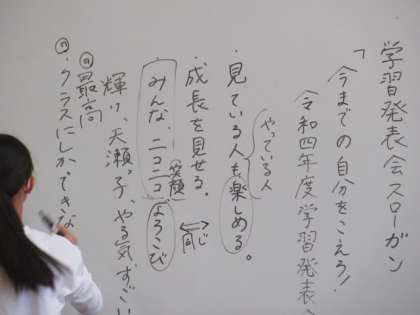 学習発表会スローガン
「今までの自分をこえろ!
令和四年度学習発表
やっている人
・見ている人も楽しめる。
・成長を見せる。
同じ
笑顔
みんな、ニコニコ、よろこび
輝け、天瀬っ子、やる気、すごい
最高
・クラスにしかできな